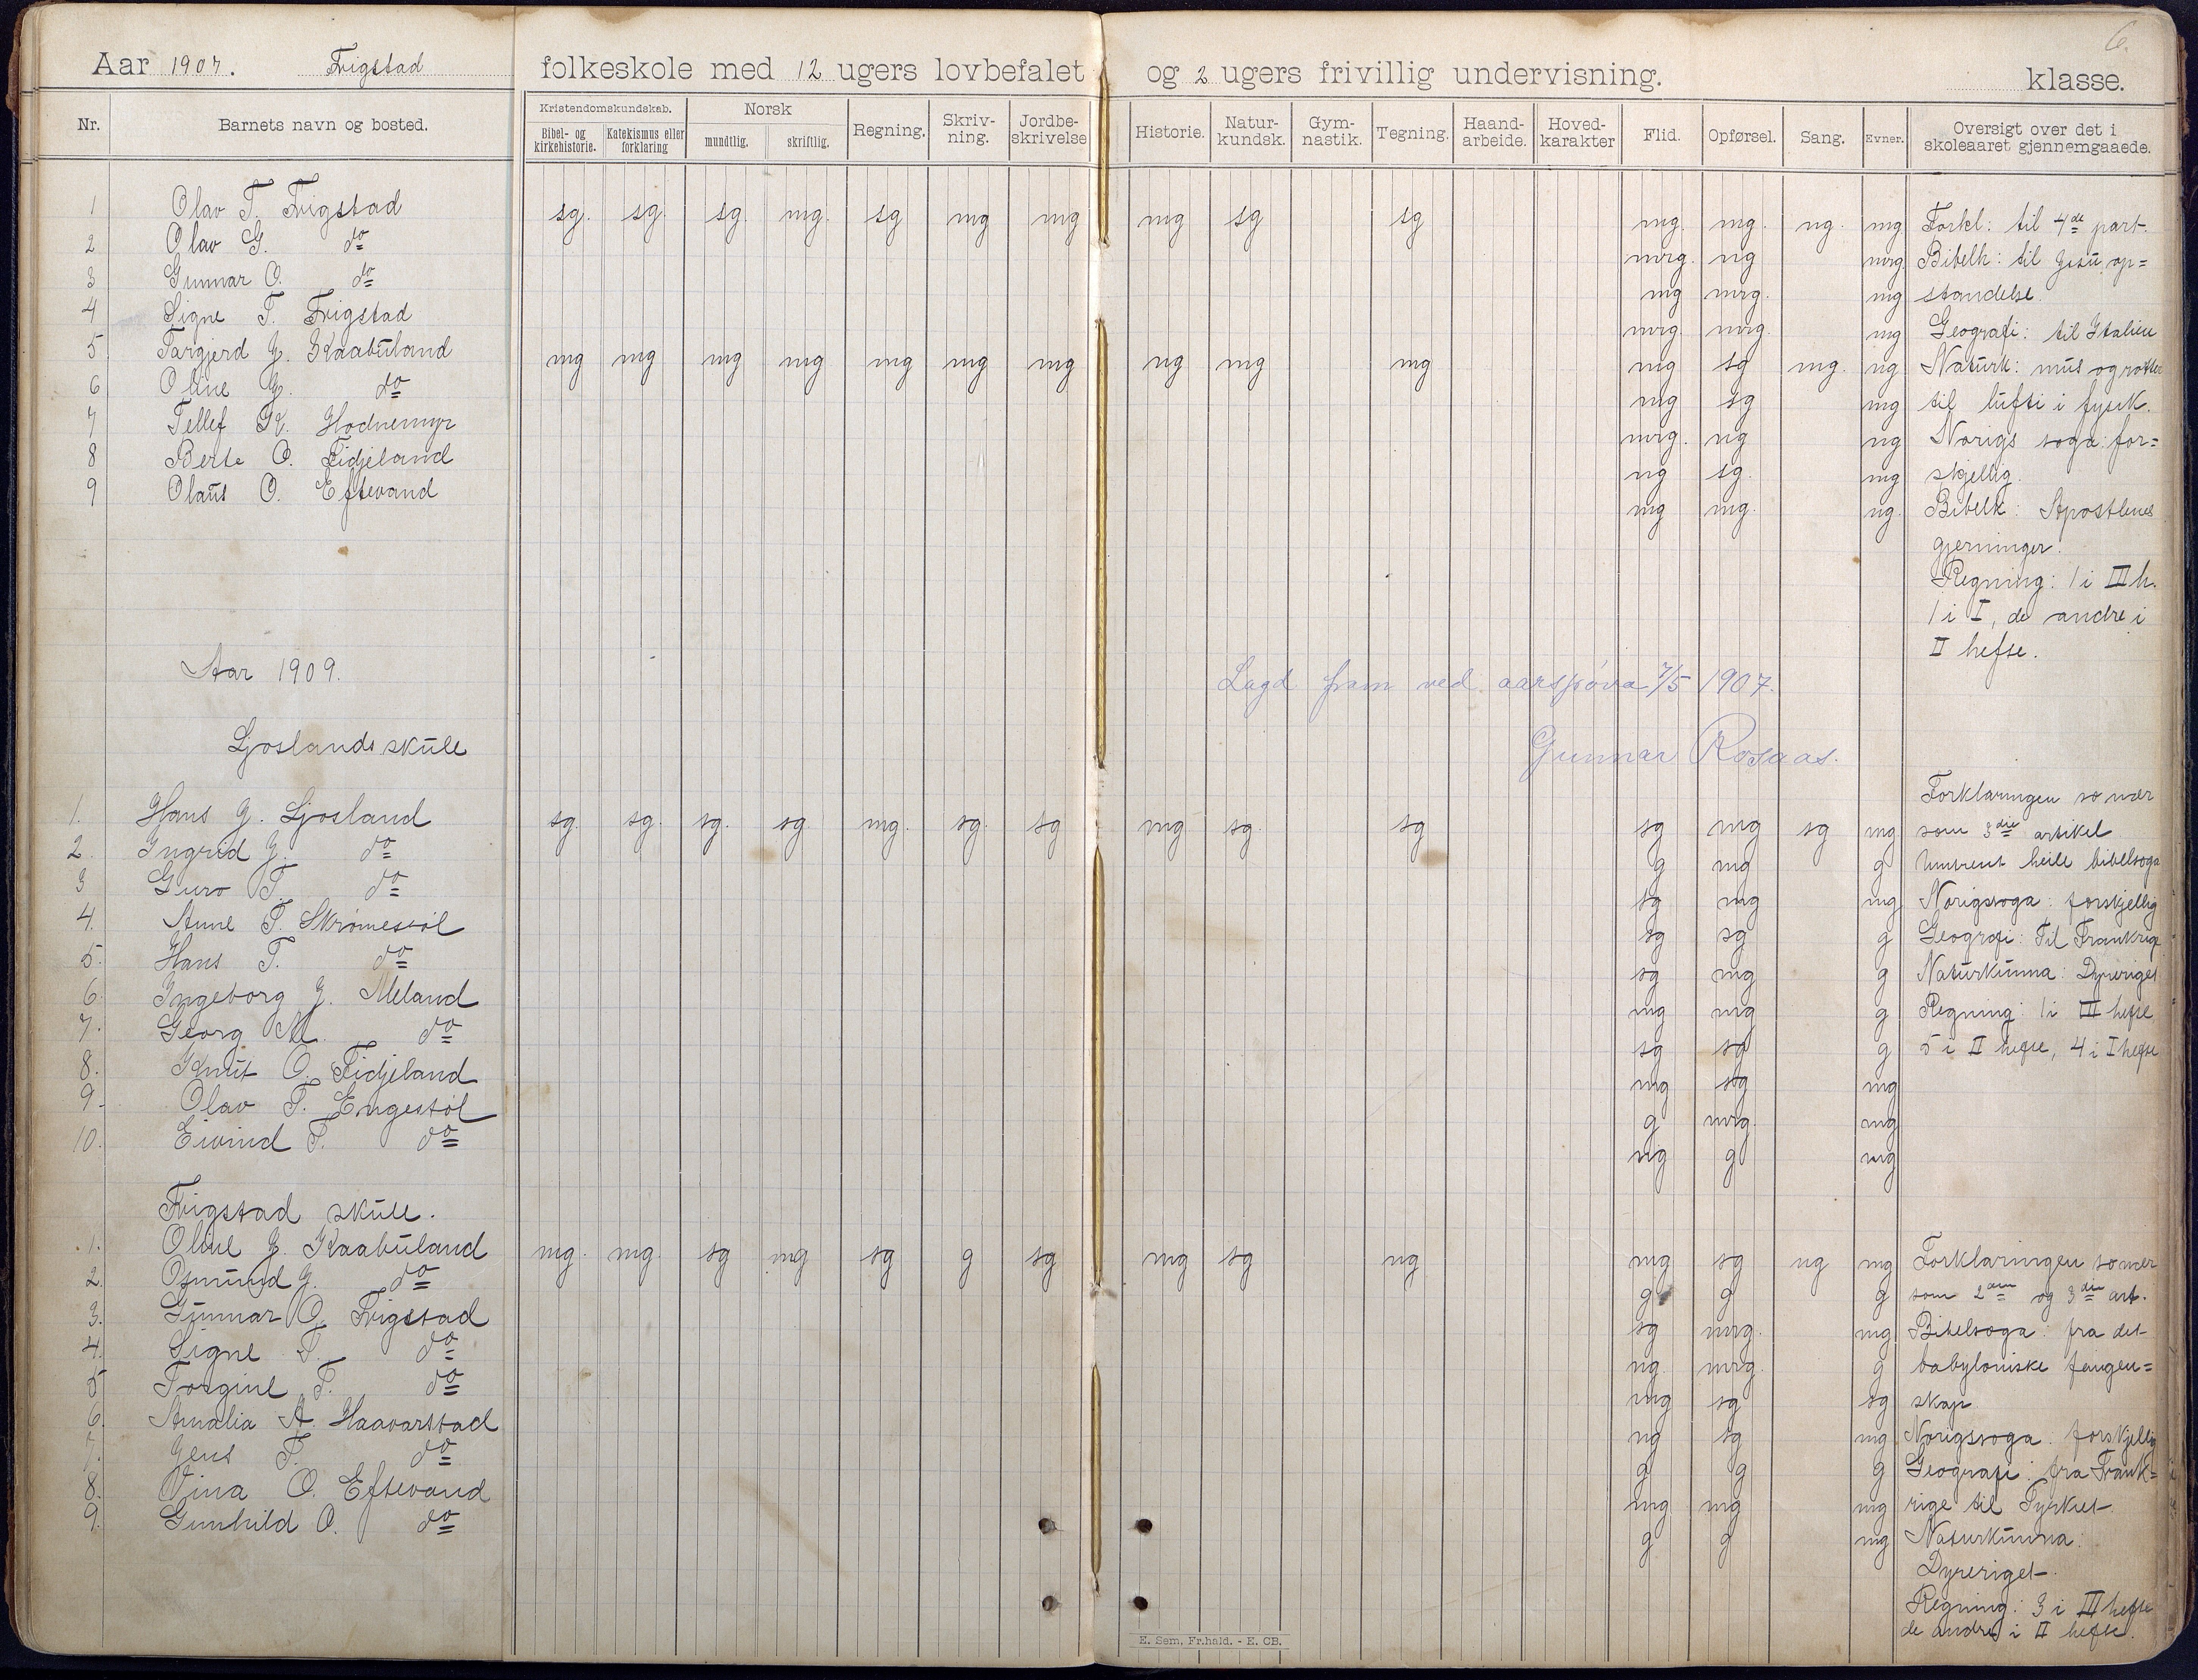 6.
Aar 1907. Frigstad folkeskole med 12 ugers lovbefalet og 2 ugers frivillig undervisning. klasse.
Nr. Barnets navn og bosted. Kristendomskundskab. Bibel- og kirkehistorie. Katekismus eller forklaring Norsk mundtlig. skriftlig. Regning. Skriv-ning. Jordbe-skrivelse Historie. Natur-kundsk. Gym-nastik. Tegning. Haand-arbeide. Hoved-karakter Flid. Opførsel. Sang. Evner. Oversigt over det i skoleaaret gjennemgaaede.
1 Olav T. Frigstad sg. sg. sg. mg. sg mg mg mg sg sg mg. mg. mg. mg Forkl: til 4de part.
2 Olav G. do mg. mg mg Bibelh: til Jesu op=
3 Gunnar O. do mg mg. mg standelse.
4 Signe T. Frigstad mg. mg. mg Geografi: til Italien
5 Targjerd G. Kaabuland mg mg mg mg mg mg mg mg mg mg mg sg mg. mg Naturk: mus og rotter
6 Oline G. do mg sg mg til lufti i fysik.
7 Tellef K. Hodnemyr mg. mg mg Norigs soga: for=
8 Berte O. Fidjeland mg sg. mg skjellig.
9 Olaus O. Eftevand mg mg. mg. Bibelk: Apostlenes
gjerninger.
Regning: 1 i III h.
1 i I, de andre i
II hefte.
Aar 1909.
Lagd fram ved aarsprøva 7/5 1907.
Ljoslands skule
Gunnar Rosaas.
Forklaringen so nær
1. Hans G. Ljosland sg. sg. sg. sg mg. sg. sg mg sg. sg sg mg sg mg som 3die artikel
2. Ingrid G. do g mg g Umtrent heile bibelsoga
3 Guro T. do sg mg mg Norigssoga: forskjellig
4. Anne T. Skromesvol sg sg g Geografi: Til Frankrige
5. Hans T. do sg mg g Naturkunna: Dyreriget
6. Ingeborg G. Meland mg mg g Regning: 1 i III hefte
7. Georg M. do sg sg g 5 i II hefte, 4 i I hefte
8. Knut O. Fidjeland mg sg mg
9. Olav T. Engestøl g mg. mg
10. Eivind T. do mg g mg
Frigstad skule.
1. Oline G. Kaabuland mg. mg. sg mg sg g sg mg sg mg mg sg mg mg Forklaringen so nær
2. Osmund G. do g g g som 2den og 3die art.
3. Gunnar O. Frigstad sg mg. mg Bibelsoga: fra det
4. Signe T. do mg. mg. g babyloniske fangen=
5 Torgine T. do mg sg sg skap
6. Amalia A. Haavarstad mg sg mg Norigssoga: forskjellig
7. Jens T. do g g g Geografi: fra Frank=
8. Vina O. Eftevand mg mg mg rige til Tyrkiet
9. Gunhild O. do g g mg Naturkunna:
Dyreriget.
Regning: 3 i III hefte
de andre i II hefte.
E. Sem, Fr.hald. - E. CB.